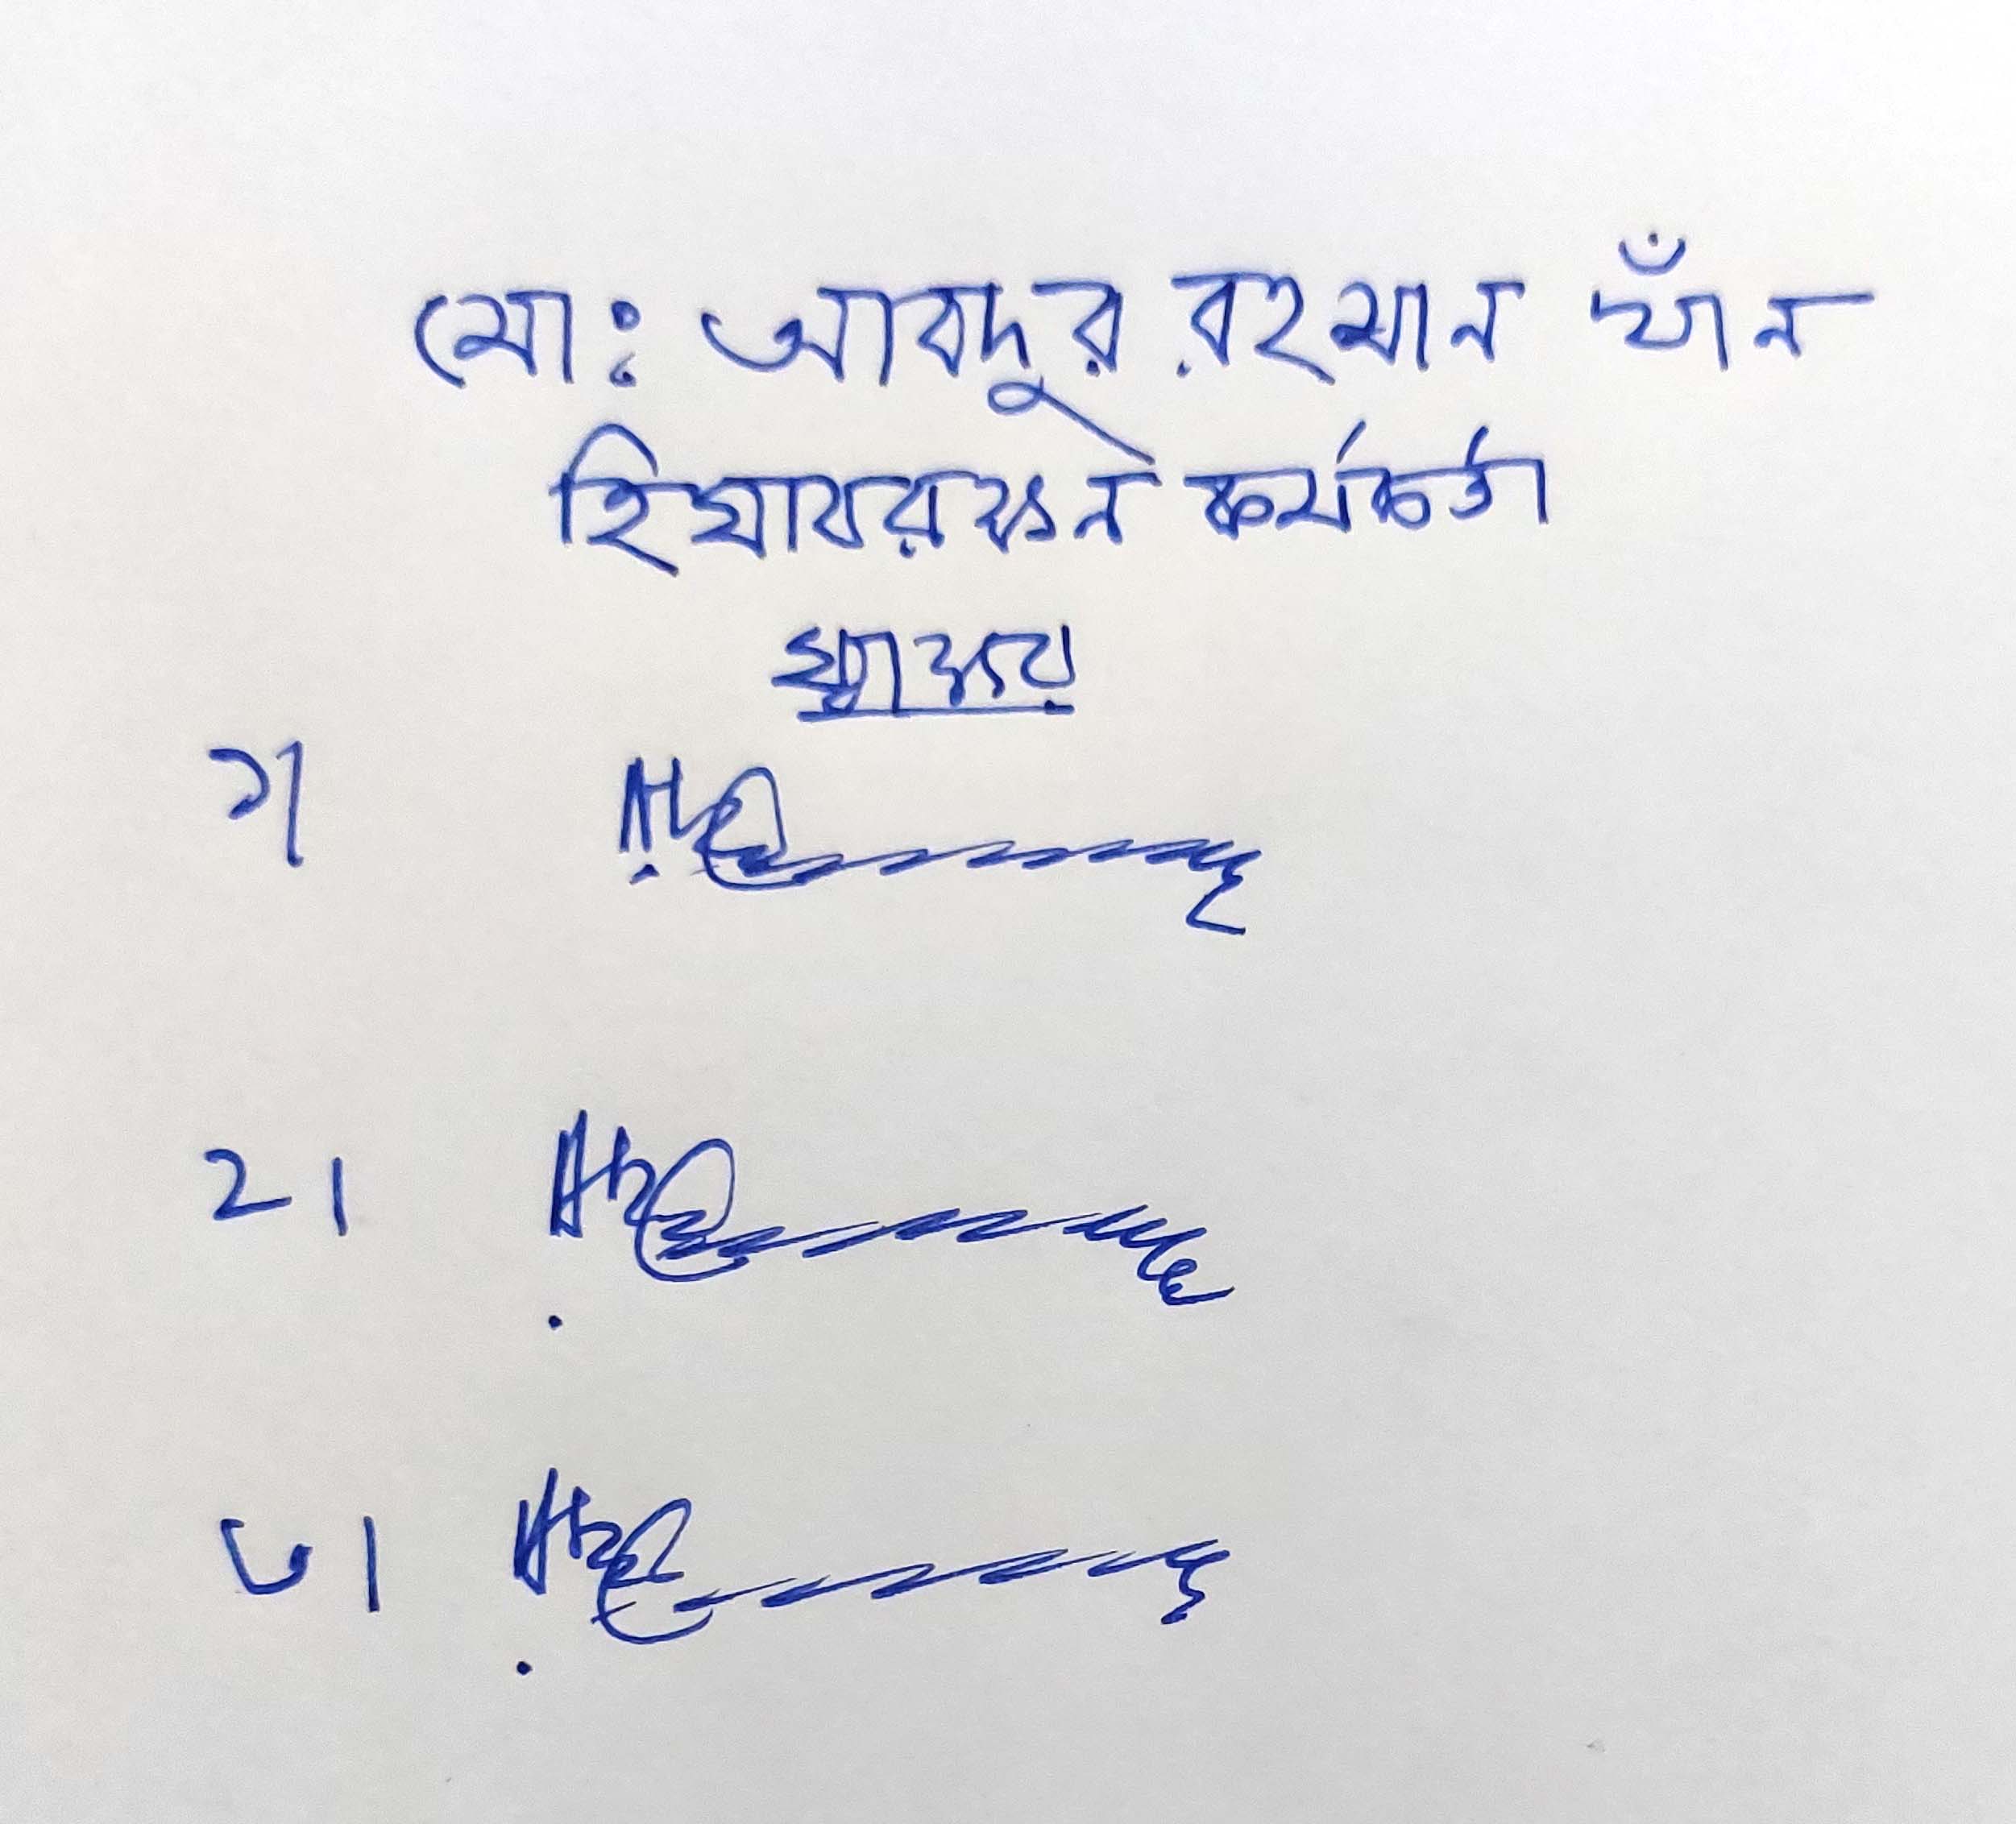 মো: আবদুর রহমান খাঁন
হিসাবরক্ষন কর্মকর্তা
স্বাক্ষর
১।
২।
৩।